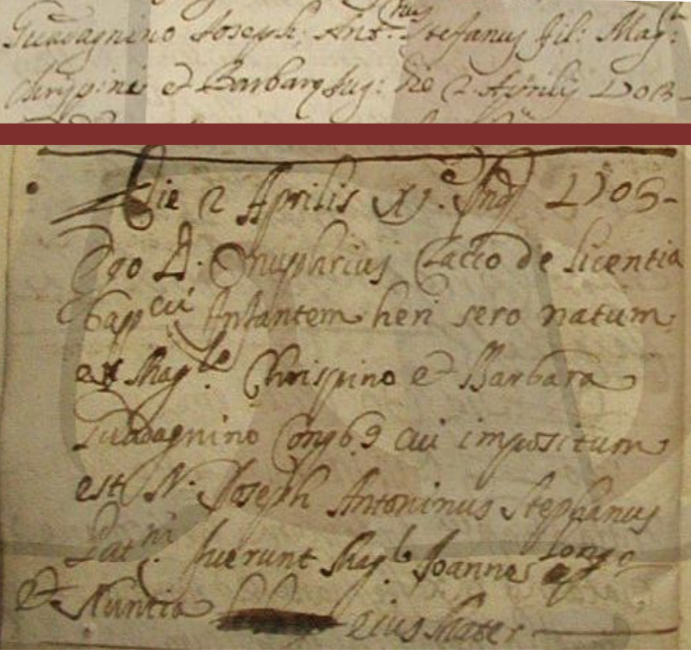 Guadagnino Joseph Ant.nus Stefanus fil: Mag:
Chrispini et Barbarę Jug: die 2 Aprilis 1703
Die 2 Aprilis XI. Ind. 1703
Ego D. Onuphrius Cacio de licentia
bap.cvi Infantem heri sero natum
ex Mag.le Chrispino et Barbara
Guadagnino Cong.9 cui impositum
est N. Joseph Antoninus Stephanus
Pat.ni fuerunt Mag. Joannes Longo
et Nuntia eius Mater